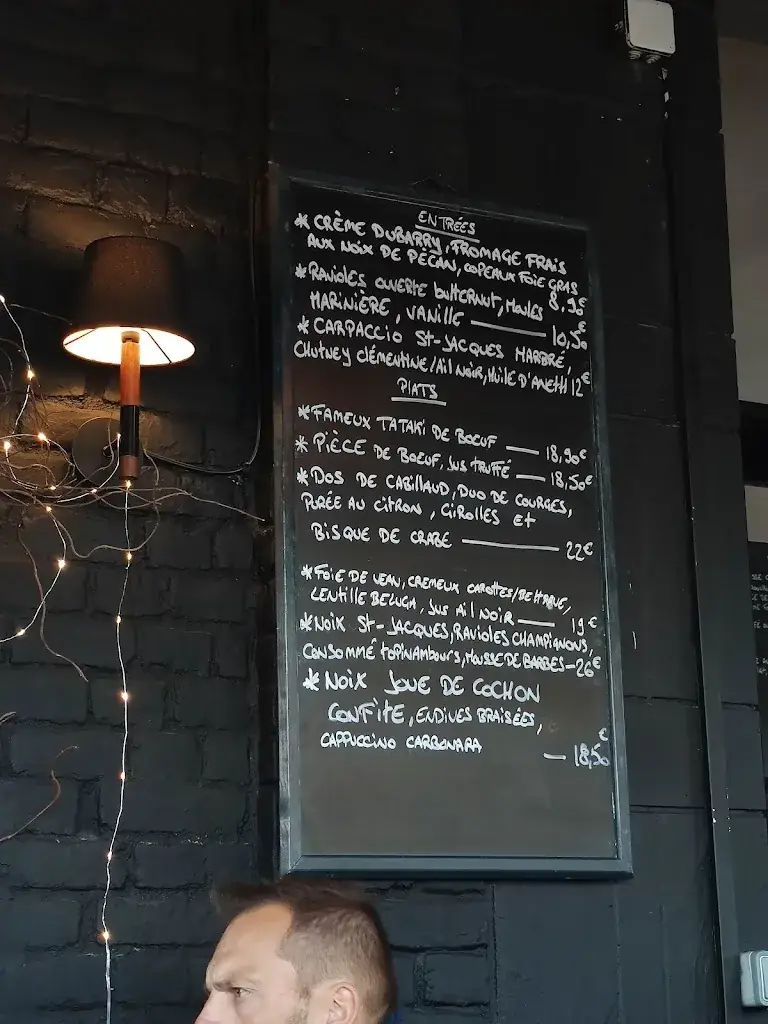 ENTRÉES
* CRÈME DUBARRY, FROMAGE FRAIS
AUX NOIX DE PÉCAN, COPEAUX FOIE GRAS
8,90€
* RAVIOLES OUVERTE BUTTERNUT, MOULES
MARINIÈRE, VANILLE — 10,50€
* CARPACCIO ST-JACQUES MARBRÉ,
CHUTNEY CLÉMENTINE/AIL NOIR, HUILE D'ANETH 12€
PLATS
* FAMEUX TATAKI DE BOEUF — 18,90€
* PIÈCE DE BOEUF, JUS TRUFFÉ — 18,50€
* DOS DE CABILLAUD, DUO DE COURGES,
PURÉE AU CITRON, GIROLLES ET
BISQUE DE CRABE — 22€
* FOIE DE VEAU, CREMEUX CAROTTES/BETTERAVE,
LENTILLE BELUGA, JUS AIL NOIR — 19€
* NOIX ST-JACQUES, RAVIOLES CHAMPIGNONS,
CONSOMMÉ TOPINAMBOURS, MOUSSE DE BARBES — 26€
* NOIX JOUE DE COCHON
CONFITE, ENDIVES BRAISÉES,
CAPPUCCINO CARBONARA — 18,50€